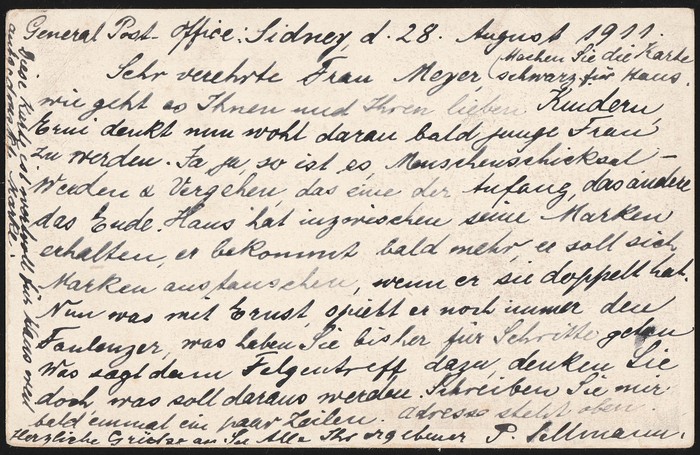 General Post-Office: Sidney, d. 28. August 1911.
Machen Sie die Karte
Sehr verehrte Frau Meyer, schwarz für Hans.
wie geht es Ihnen und Ihren lieben Kindern,
Erni denkt nun wohl daran bald junge Frau
zu werden. Ja ja, so ist es, Menschenschicksal –
Werden & Vergehen, das eine der Anfang, das andere
das Ende. Hans hat inzwischen seine Marken
erhalten, er bekommt bald mehr, er soll sich
Marken austauschen, wenn er sie doppelt hat.
Nun was mit Ernst, spielt er noch immer den
Faulenzer, was haben Sie bisher für Schritte getan
Was sagt denn Felgentreff dazu, denken Sie
doch, was soll daraus werden. Schreiben Sie mir
bald einmal ein paar Zeilen. Adresse steht oben.
Herzliche Grüsse an Sie Alle Ihr ergebener P. Sellmann.
Diese Karte ist wertvoll für Hans weil
Marke.